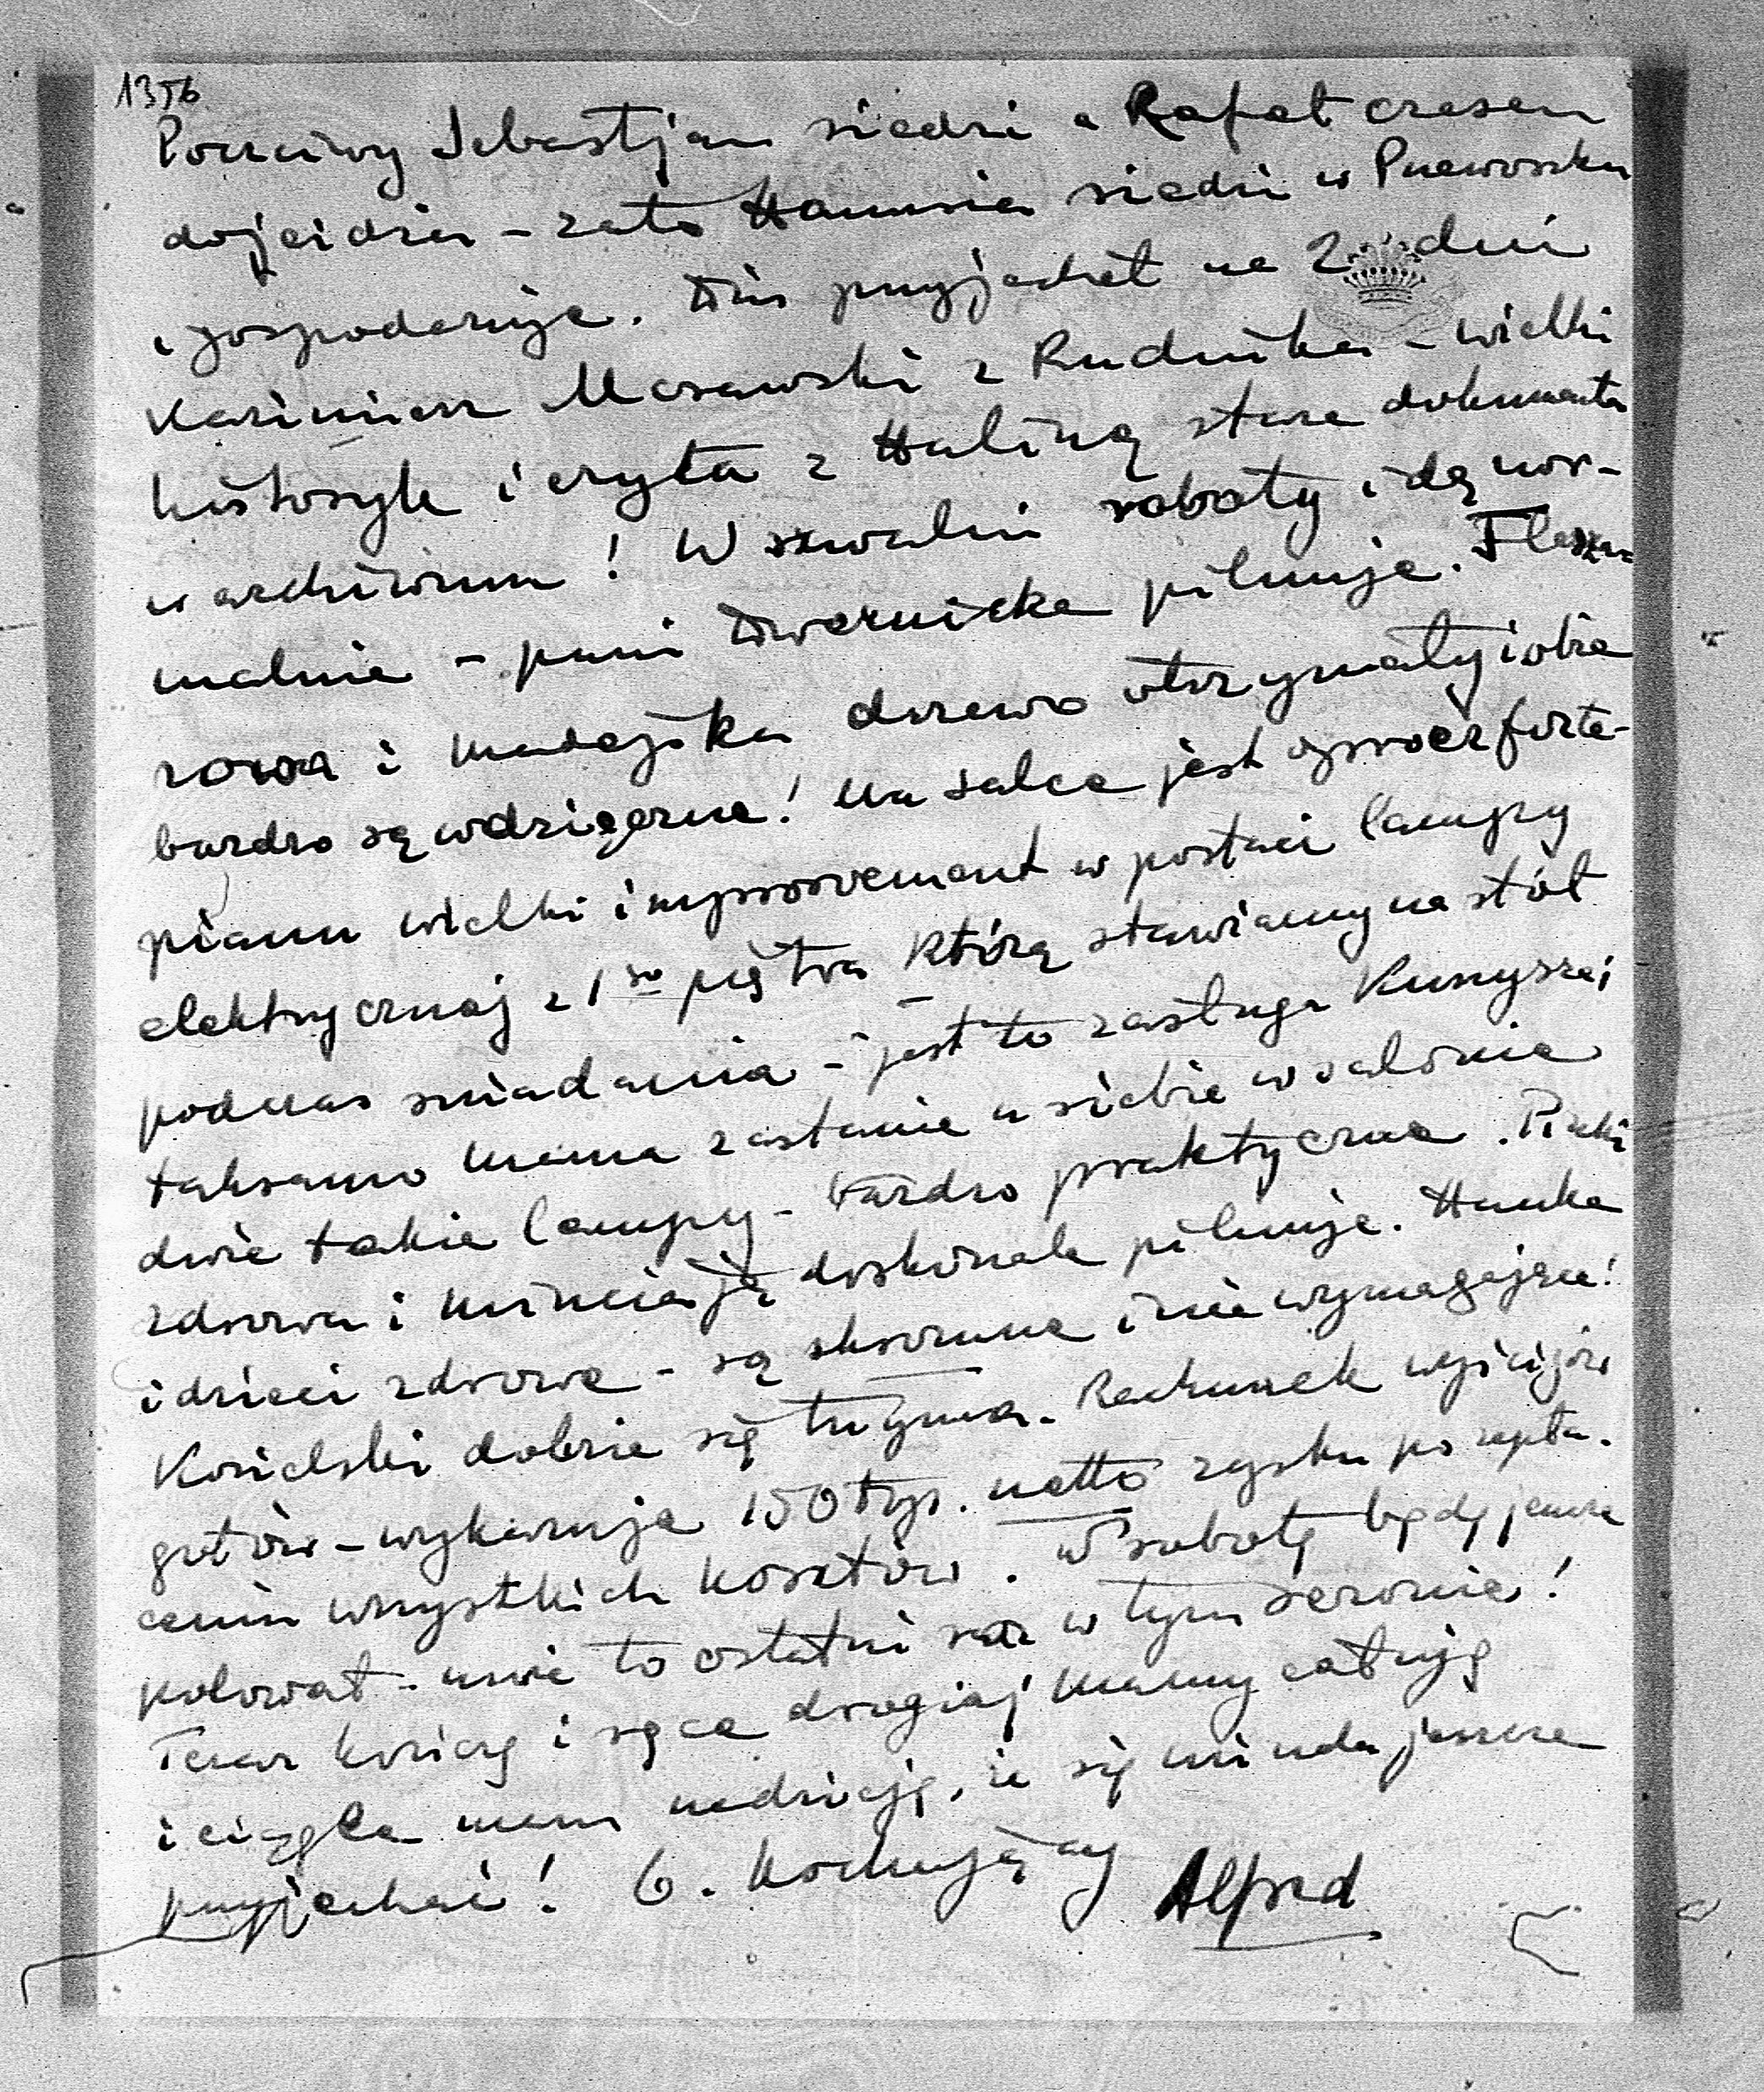 1356
Poczciwy Sebastjan siedzi a Rafał czasem
dojeżdża – zato Hanusia siedzi w Przeworsku
i gospodaruje. Dziś przyjechał na 2 dni
Kazimierz Morawski z Rudnika – wielki
historyk i czyta z Haliną stare dokumenta
w archiwum! W szwalni roboty idą nor-
malnie – pani Dwernicka pilnuje. Flesza-
rowa i Madejska drzewo otrzymały i obie
bardzo są wdzięczne! Na salce jest oprócz forte-
pianu wielki improovement w postaci lampy
elektrycznej z 1go piętra którą stawiamy na stół
podczas śniadania – jest to zasługa Kunyszej
taksamo Mama zastanie u siebie w salonie
dwie takie lampy – bardzo praktyczne.
zdrowa i doskonale pilnuje. Hanka
i dzieci zdrowe – są skromne i nie wymagające!
Kozielski dobrze się trzyma. Rachunek wyścigów
gotów – wykazuje 150 tys. netto zysku po zapła-
ceniu wszystkich kosztów. W sobotę będę jeszcze
polował – może to ostatni raz w tym sezonie!
Teraz kończę i ręce drogiej Mamy całuję
i ciągle mam nadzieję, że się mi uda jeszcze
przyjechać! b. kochający
Alfred